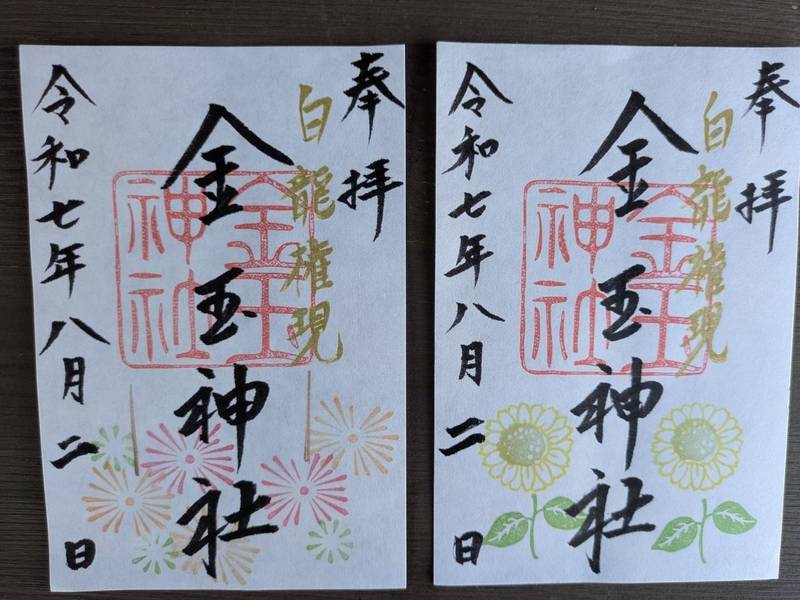 奉拝
白龍権現
金玉神社
金玉神社
令和七年八月二日
奉拝
白龍権現
金玉神社
金玉神社
令和七年八月二日